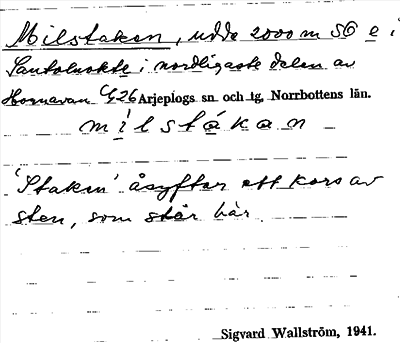 Milstaken, udde 2000 m SO e i
Sautoluokte i nordligaste delen av
Hornavan C4,26 Arjeplogs sn och tg, Norrbottens län.
mílstàkan
'Staken' åsyftar ett kors av
sten, som står här.
Sigvard Wallström, 1941.